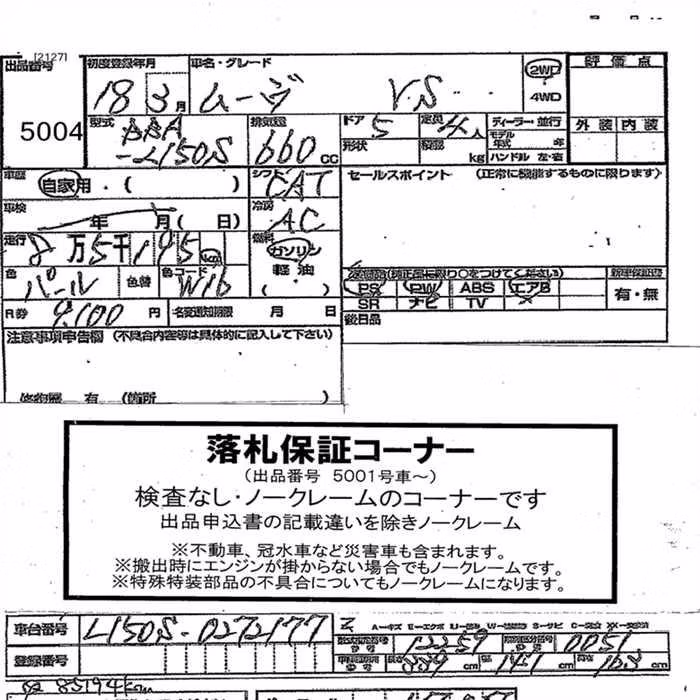 [2127]
出品番号 初度登録年月 車名・グレード 2WD 評価点
18 3月 ムーヴ VS 4WD
5004 型式 ABA-L150S 排気量 660cc ドア 5 定員 4人 ディーラー・並行 外装 内装
形状 積載 kg モデル年式 年 ハンドル 左・右
車歴 自家用・( ) シフト CAT セールスポイント (正常に機能するものに限ります)
車検 年 月( 日) 冷房 AC
走行 8万5千195km 燃料 ガソリン
軽油
色 パール 色替 色コード W16 ( ・ )
PS PW ABS エアB 有・無
SR ナビ TV
R券 9,100円 名変通知期限 月 日 後日品
注意事項申告欄 (不具合内容等は具体的に記入して下さい)
修復歴 有 (箇所 )
落札保証コーナー
(出品番号 5001号車~)
検査なし・ノークレームのコーナーです
出品申込書の記載違いを除きノークレーム
※不動車、冠水車など災害車も含まれます。
※搬出時にエンジンが掛からない場合でもノークレームです。
※特殊特装部品の不具合についてもノークレームになります。
車台番号 L150S-0272177
12259 0051
登録番号 339cm 147cm cm
85194km